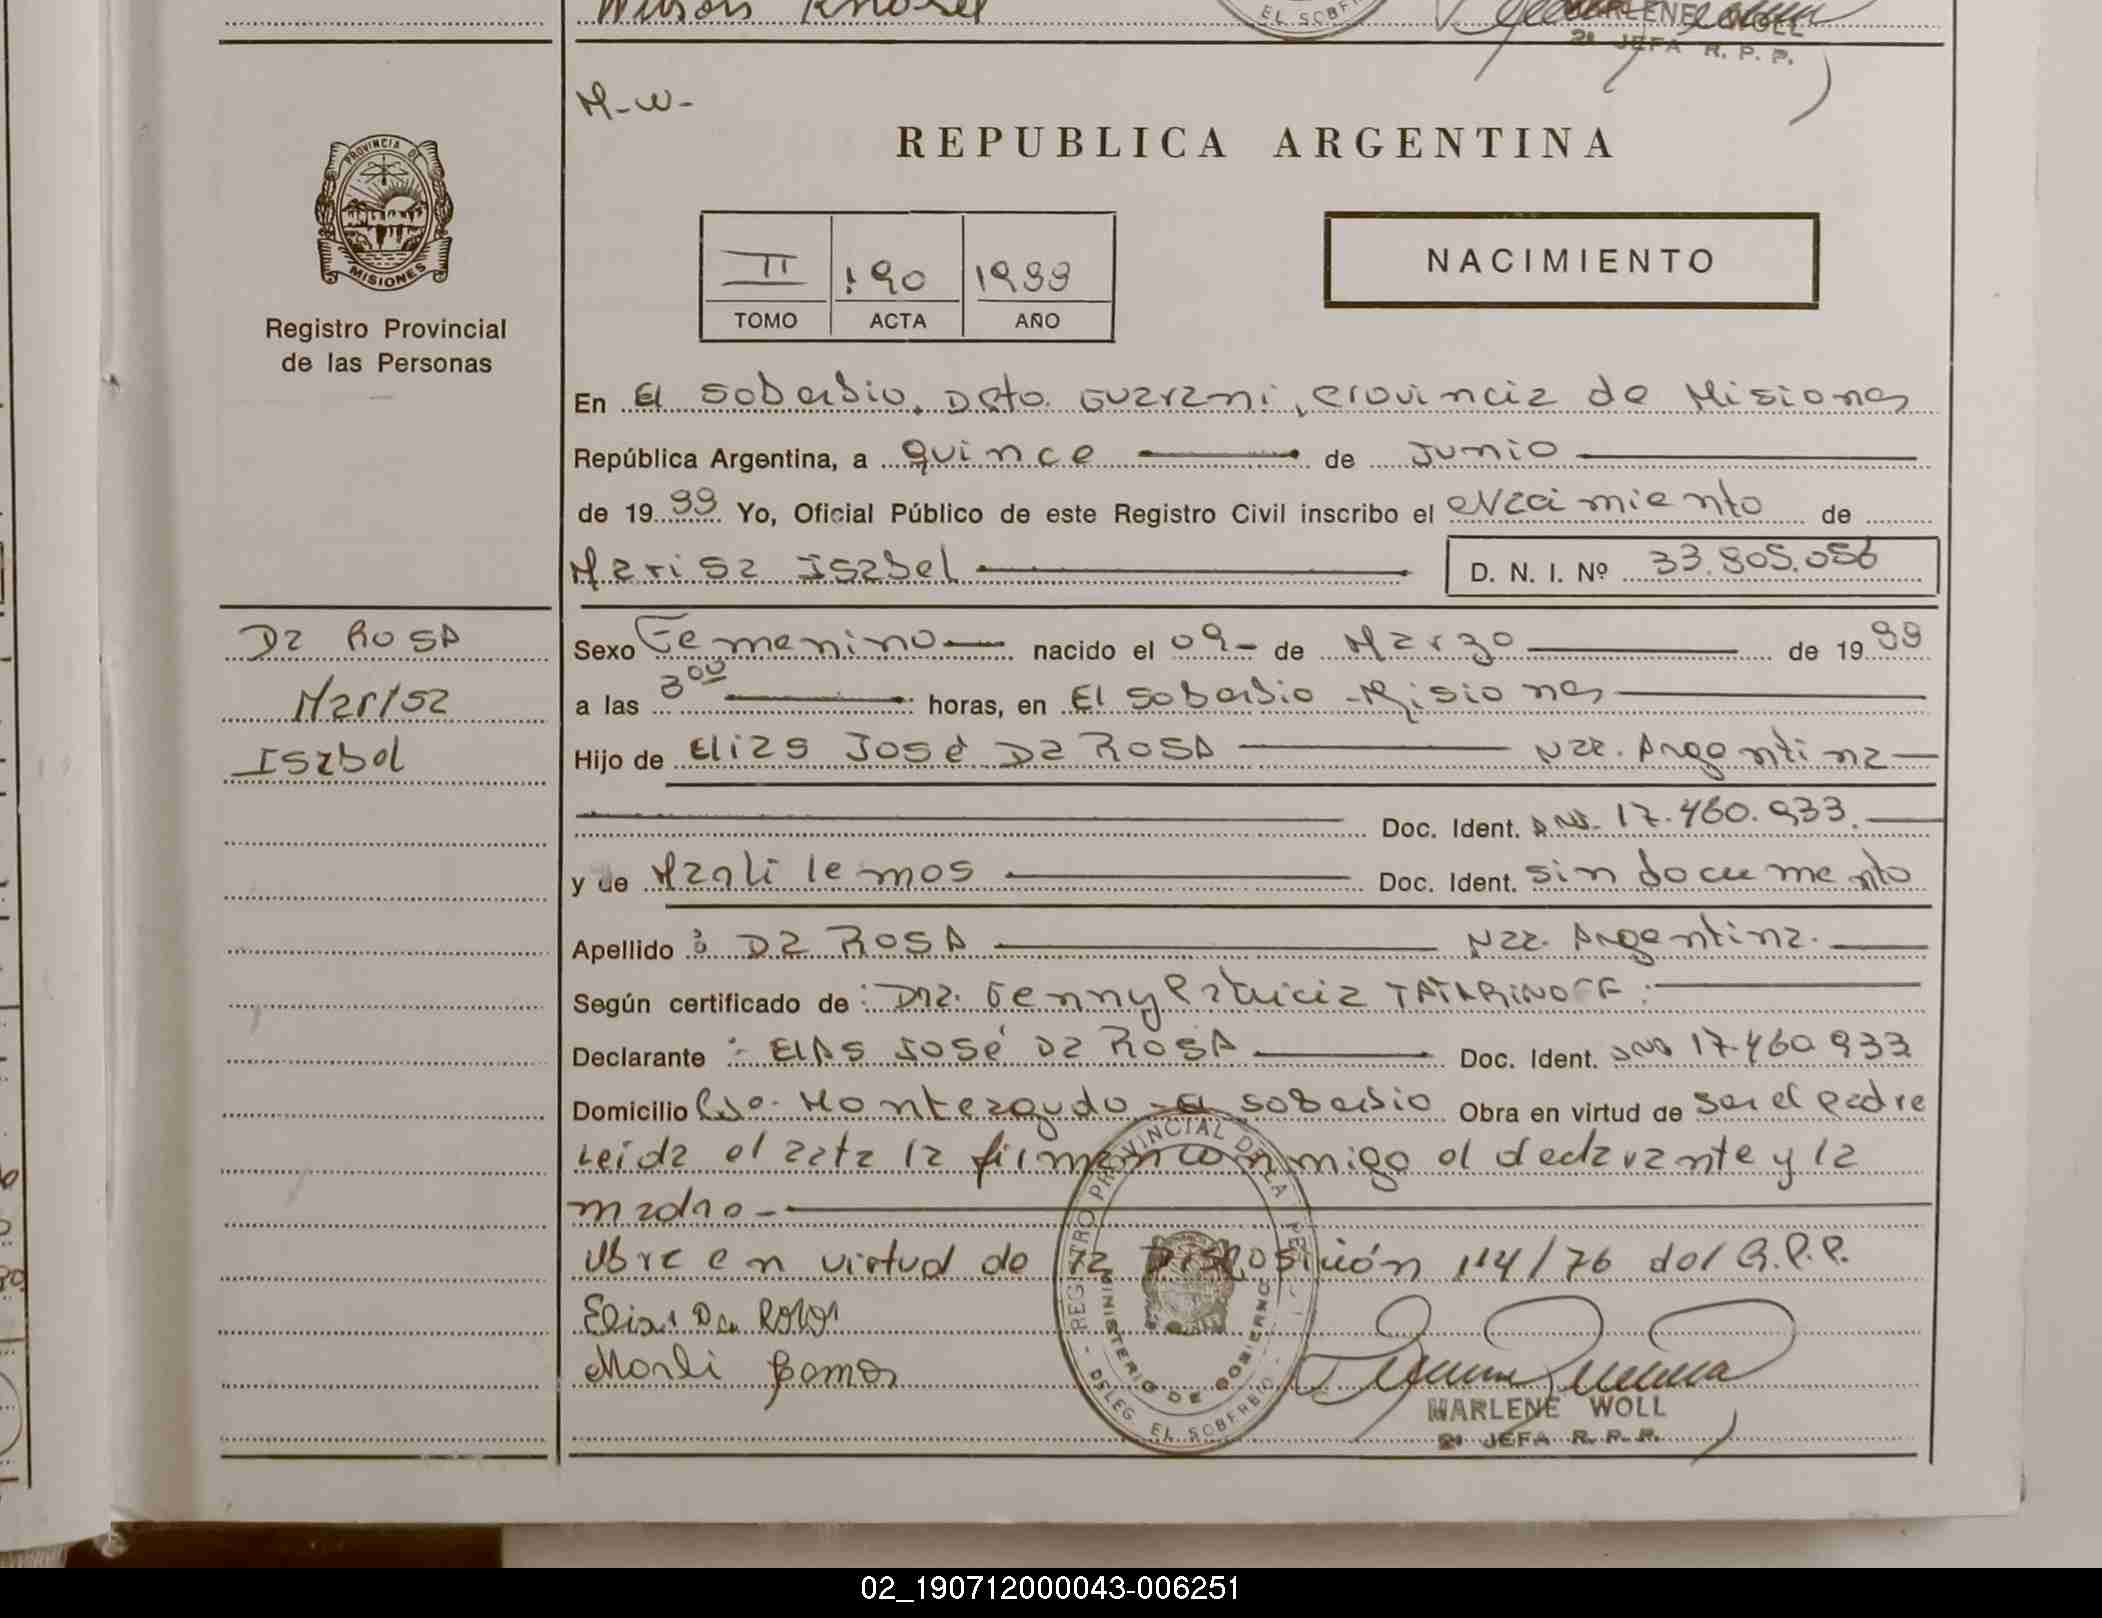 MARLENE WOLL
2ª JEFA R. P. P.
M-W-
REPUBLICA ARGENTINA
PROVINCIA DE
MISIONES
Registro Provincial
de las Personas
II 190 1999
TOMO ACTA AÑO
NACIMIENTO
En El Soberbio, Dpto. Guarani, Provincia de Misiones
República Argentina, a quince de Junio
de 1999 Yo, Oficial Público de este Registro Civil inscribo el Nacimiento de
Marisa Isabel D. N. I. Nº
Da ROSA
Marisa
Isabel
Sexo Femenino nacido el 09 - de Marzo de 1999
a las 3⁰⁰ horas, en El Soberbio - Misiones
Hijo de Elias José Da ROSA Nac. Argentina
Doc. Ident. DNI. 17.460.933.
y de Marli Lemos Doc. Ident. sin documento
Apellido : Da ROSA Nac. Argentina.
Según certificado de : Dra. Fenny Patricia TATARINOFF.
Declarante : Elias José Da ROSA Doc. Ident. DNI 17.460.933
Domicilio Cjo. Monteagudo - El Soberbio Obra en virtud de ser el padre
Leida el acta la firman conmigo el declarante y la
madre -
Obra en virtud de la Disposición 114/76 del R.P.P.
Elias Da Rosa
Marli
REGISTRO PROVINCIAL DE LA
MINISTERIO DE GOBIERNO
DELEG. EL SOBERBIO
MARLENE WOLL
2ª JEFA R. P. P.
02_190712000043-006251